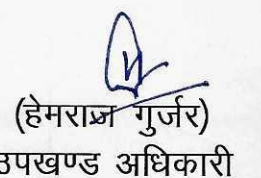 (हेमराज गुर्जर)
उपखण्ड अधिकारी